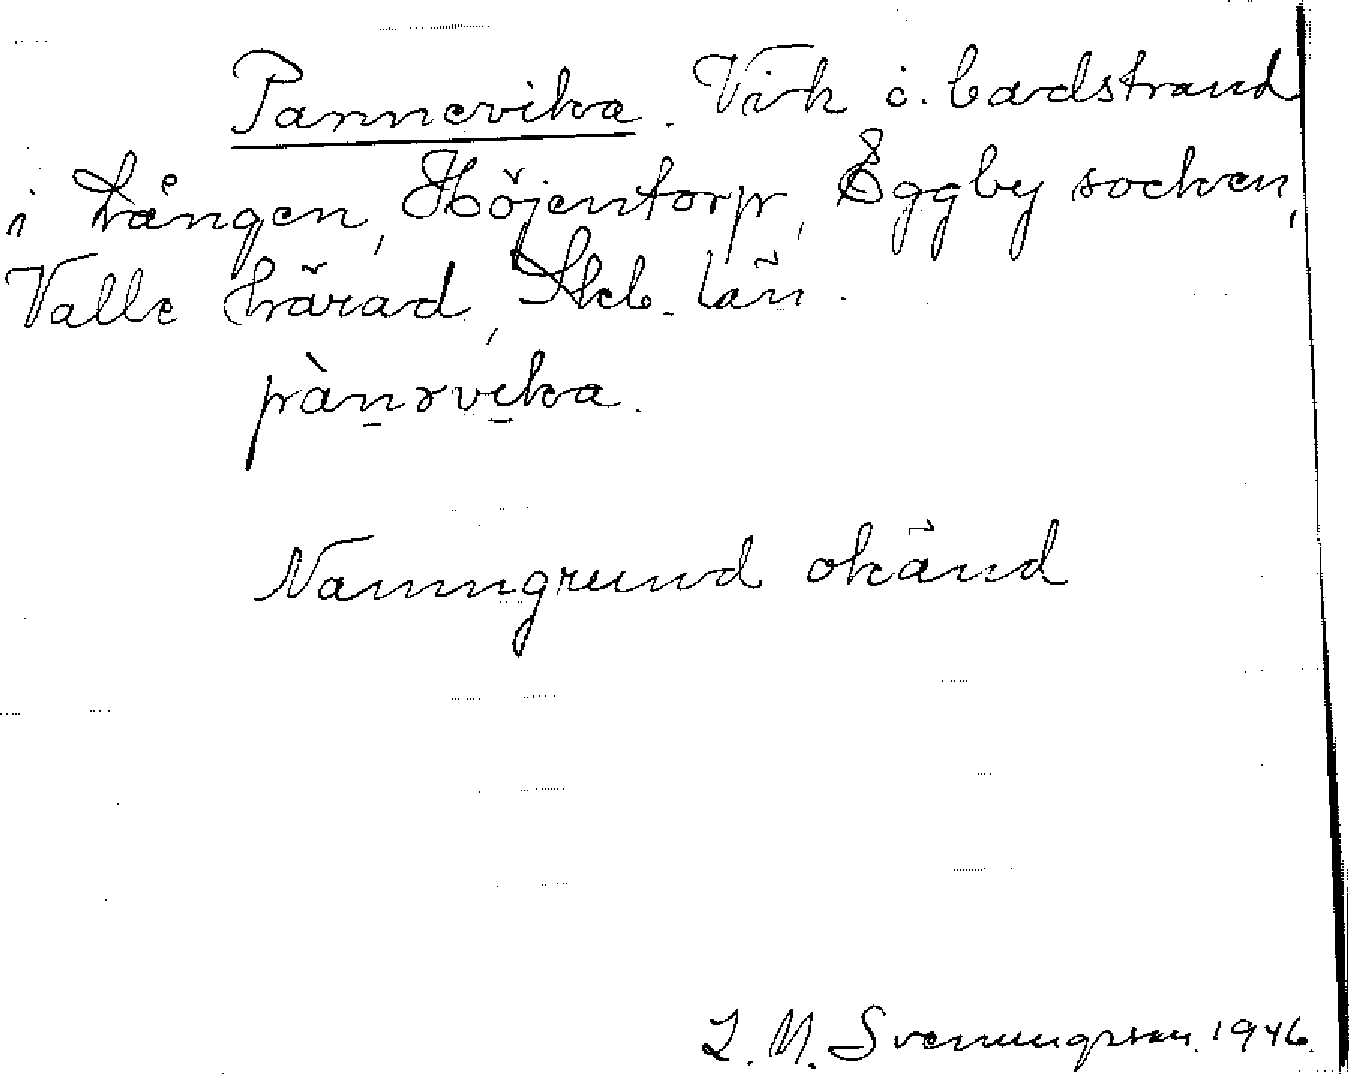 Pannevika. Vik o. badstrand
i Lången, Höjentorp, Eggby socken,
Valle härad, Skb. län.
pànɤvika.
Namngrund okänd
L. M. Svenungsson. 1946.